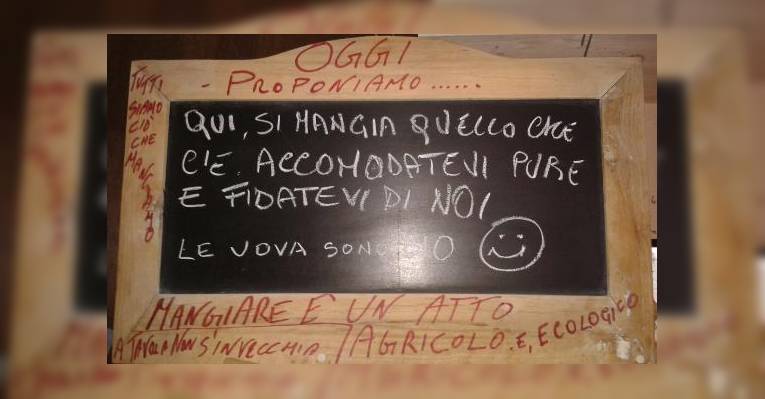 OGGI
- PROPONIAMO......
TUTTI
SIAMO
CIÒ
CHE
MANGIAMO
QUI, SI MANGIA QUELLO CHE
C'È. ACCOMODATEVI PURE
E FIDATEVI DI NOI
LE UOVA SONO
MANGIARE È UN ATTO
AGRICOLO. E, ECOLOGICO
A TAVOLA NON S'INVECCHIA